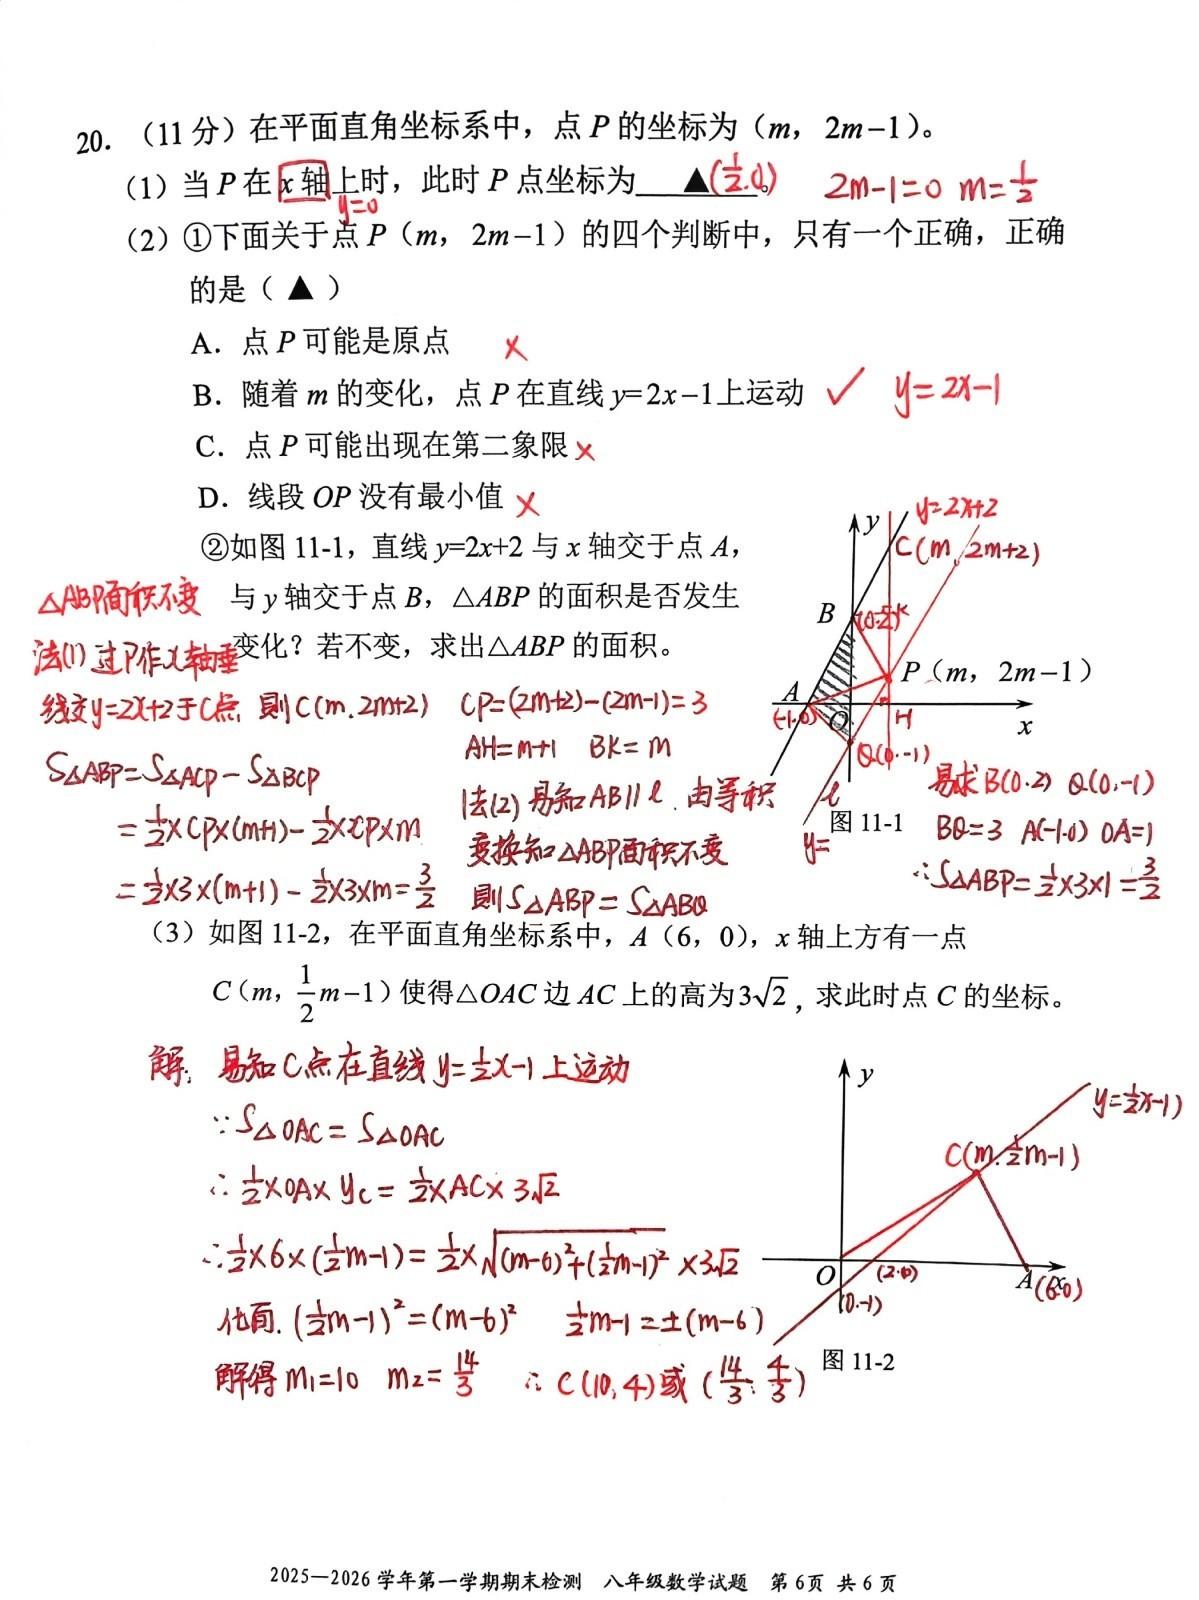 20. （11分）在平面直角坐标系中，点P的坐标为（m，2m−1）。
（1）当P在x轴上时，此时P点坐标为 ▲(1/2.0)。 2m−1=0 m=1/2
y=0
（2）①下面关于点P（m，2m−1）的四个判断中，只有一个正确，正确
的是（ ▲ ）
A．点P可能是原点 ×
B．随着m的变化，点P在直线y=2x−1上运动 ✓ y=2x−1
C．点P可能出现在第二象限 ×
D．线段OP没有最小值 ×
②如图11-1，直线y=2x+2与x轴交于点A，
与y轴交于点B，△ABP的面积是否发生
变化？若不变，求出△ABP的面积。
y
y=2x+2
C(m,2m+2)
B
(0.2)
K
P（m，2m−1）
A
(-1.0)
O
H
x
Q(0.-1)
l
y=
图11-1
△ABP面积不变
法(1) 过P作x轴垂
线交y=2x+2于C点 则C(m.2m+2) CP=(2m+2)−(2m−1)=3
AH=m+1 BK=m
S△ABP=S△ACP−S△BCP
=1/2×CP×(m+1)−1/2×CP×m
=1/2×3×(m+1)−1/2×3×m=3/2
法(2) 易知AB∥l.由等积
变换知△ABP面积不变
则S△ABP=S△ABQ
易求B(0.2) Q(0,-1)
BQ=3 A(-1.0) OA=1
∴S△ABP=1/2×3×1=3/2
（3）如图11-2，在平面直角坐标系中，A（6，0），x轴上方有一点
C（m，1/2m−1）使得△OAC边AC上的高为3√2，求此时点C的坐标。
解：易知C点在直线y=1/2x−1上运动
∵S△OAC=S△OAC
∴1/2×OA×yc=1/2×AC×3√2
∴1/2×6×(1/2m−1)=1/2×√((m−6)²+(1/2m−1)²)×3√2
化简.(1/2m−1)²=(m−6)² 1/2m−1=±(m−6)
解得m₁=10 m₂=14/3 ∴C(10,4)或(14/3,4/3)
y
y=1/2x−1)
C(m.1/2m−1)
O
(2.0)
A(6.0)
x
(0.-1)
图11-2
2025—2026学年第一学期期末检测 八年级数学试题 第6页 共6页